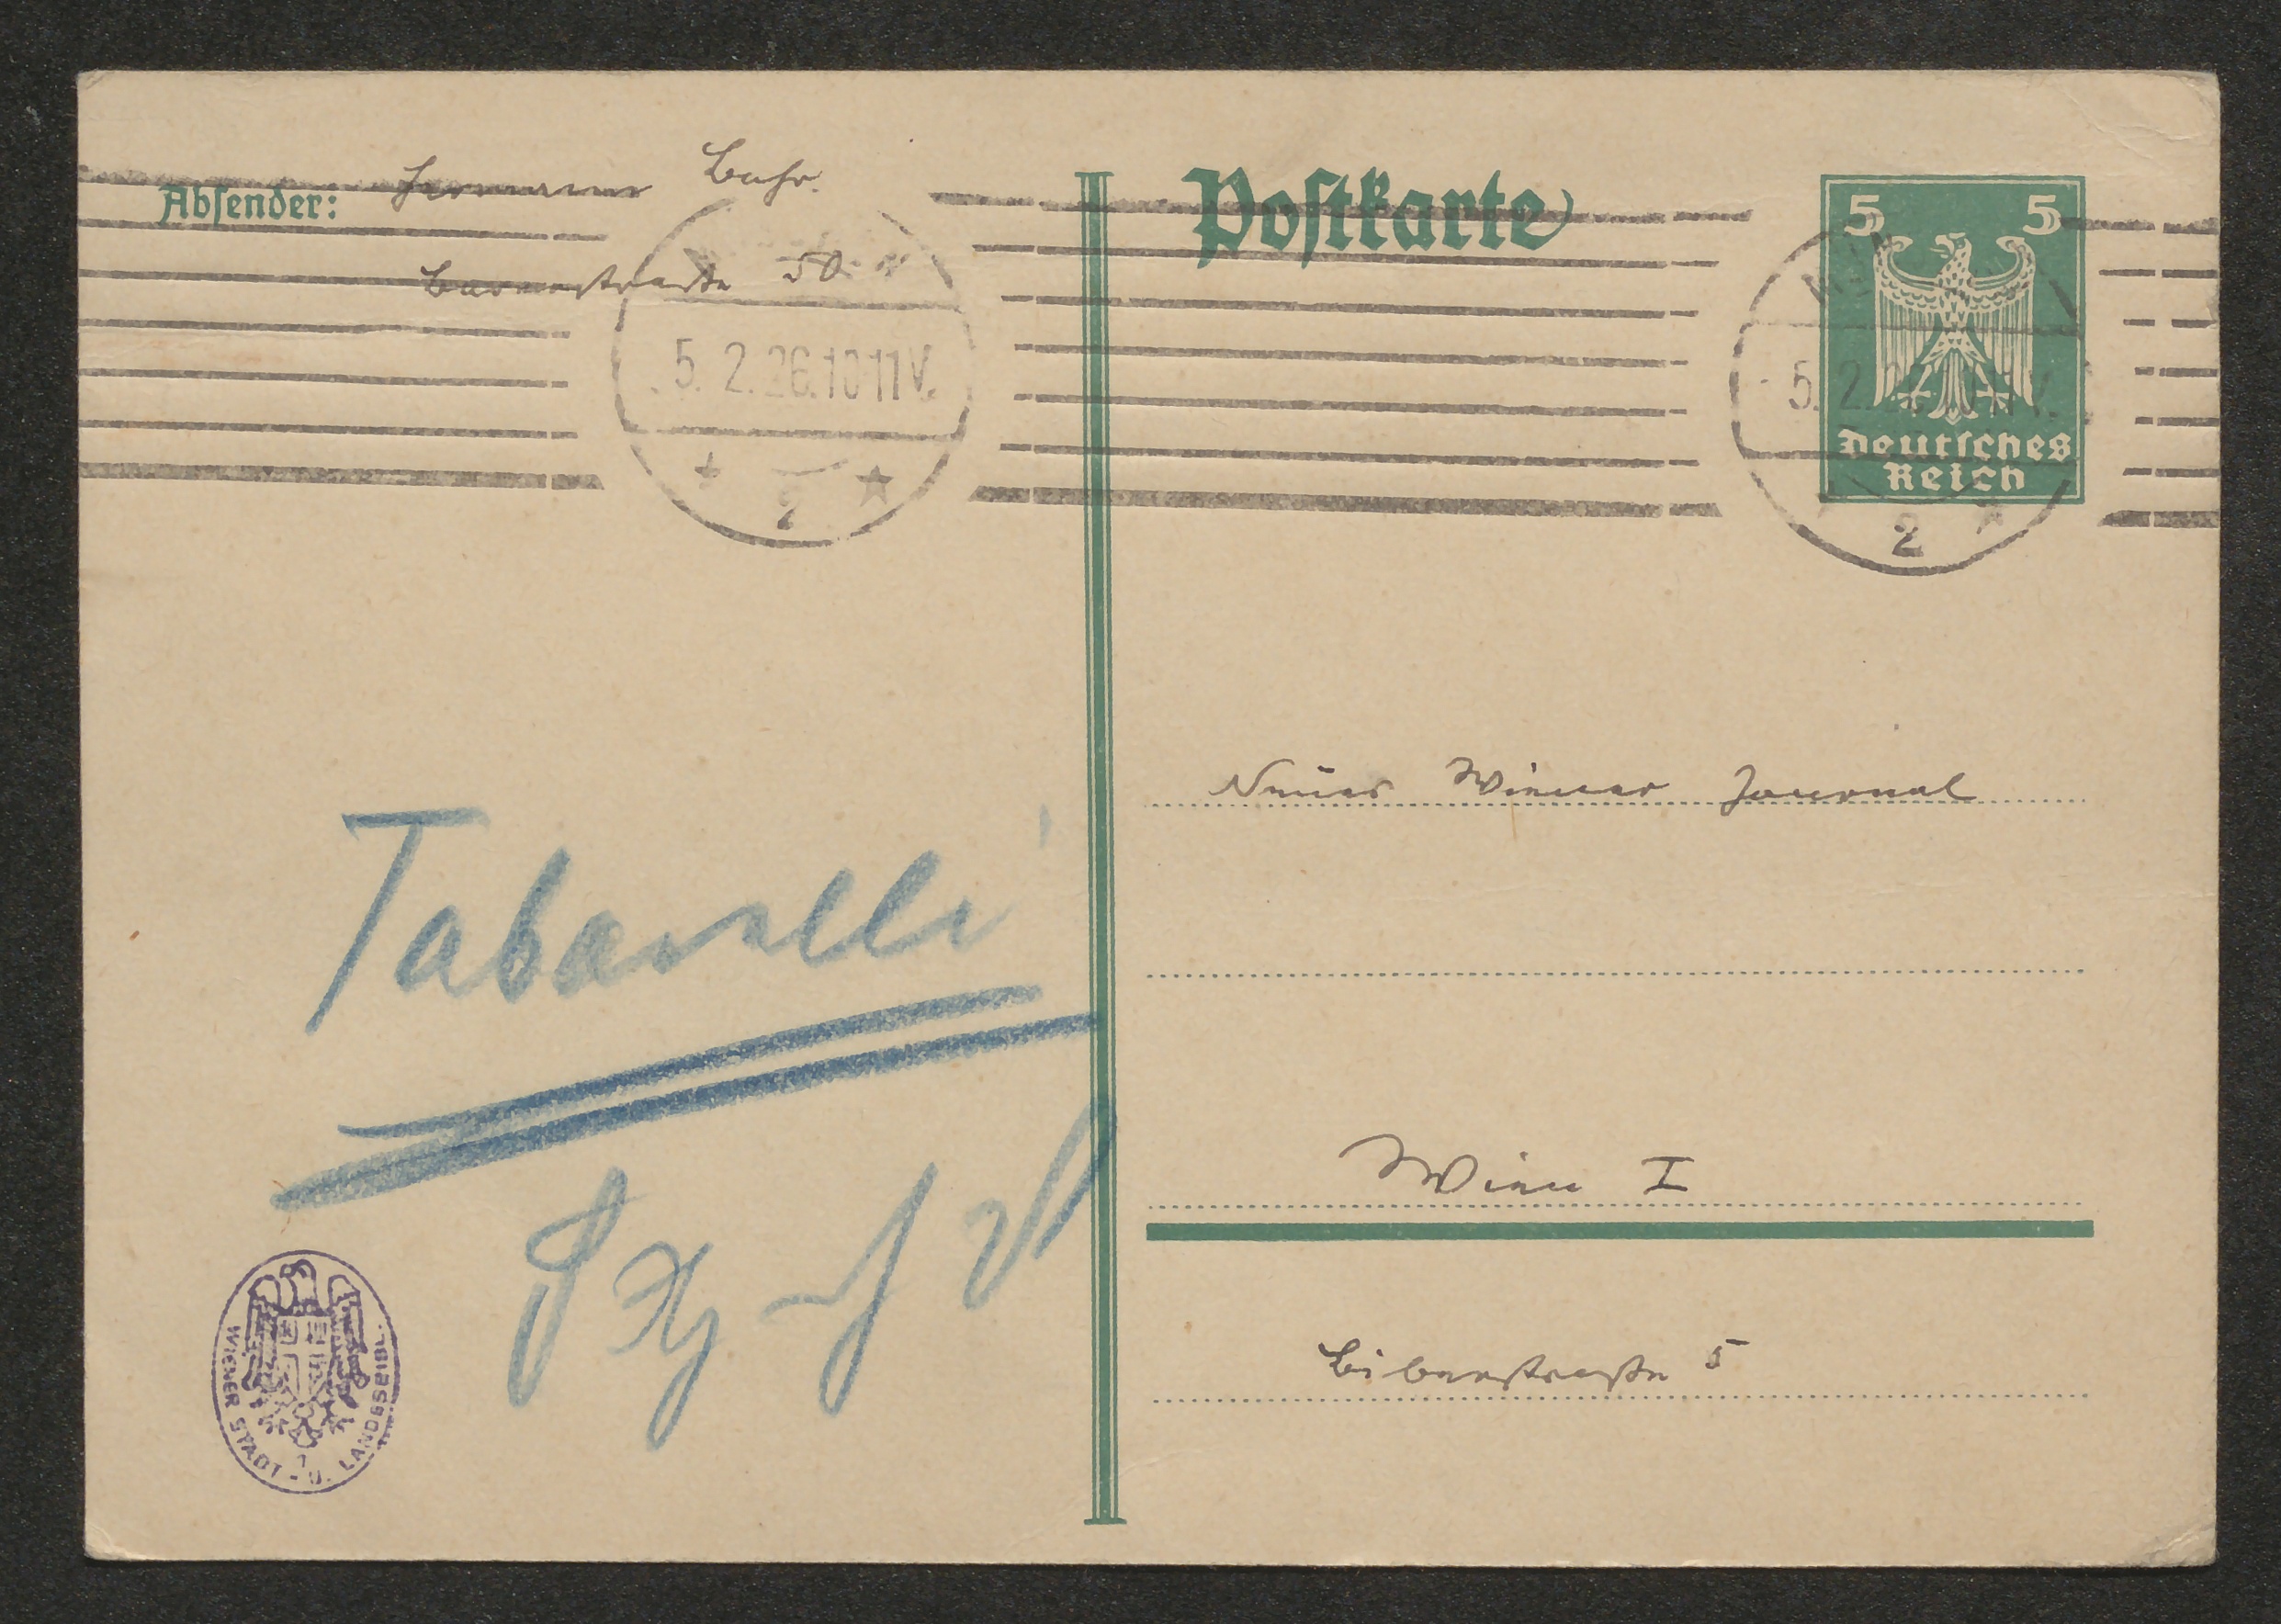 Absender: Hermann Bahr.
Barerstraße 50
5. 2. 26. 10-11 V.
2
Postkarte
5 5
Deutsches
Reich
MÜN
5. 2. V.
2
Neues Wiener Journal
Wien I
Biberstraße 5
Tabarelli
WIENER STADT - U. LANDESBIBL.